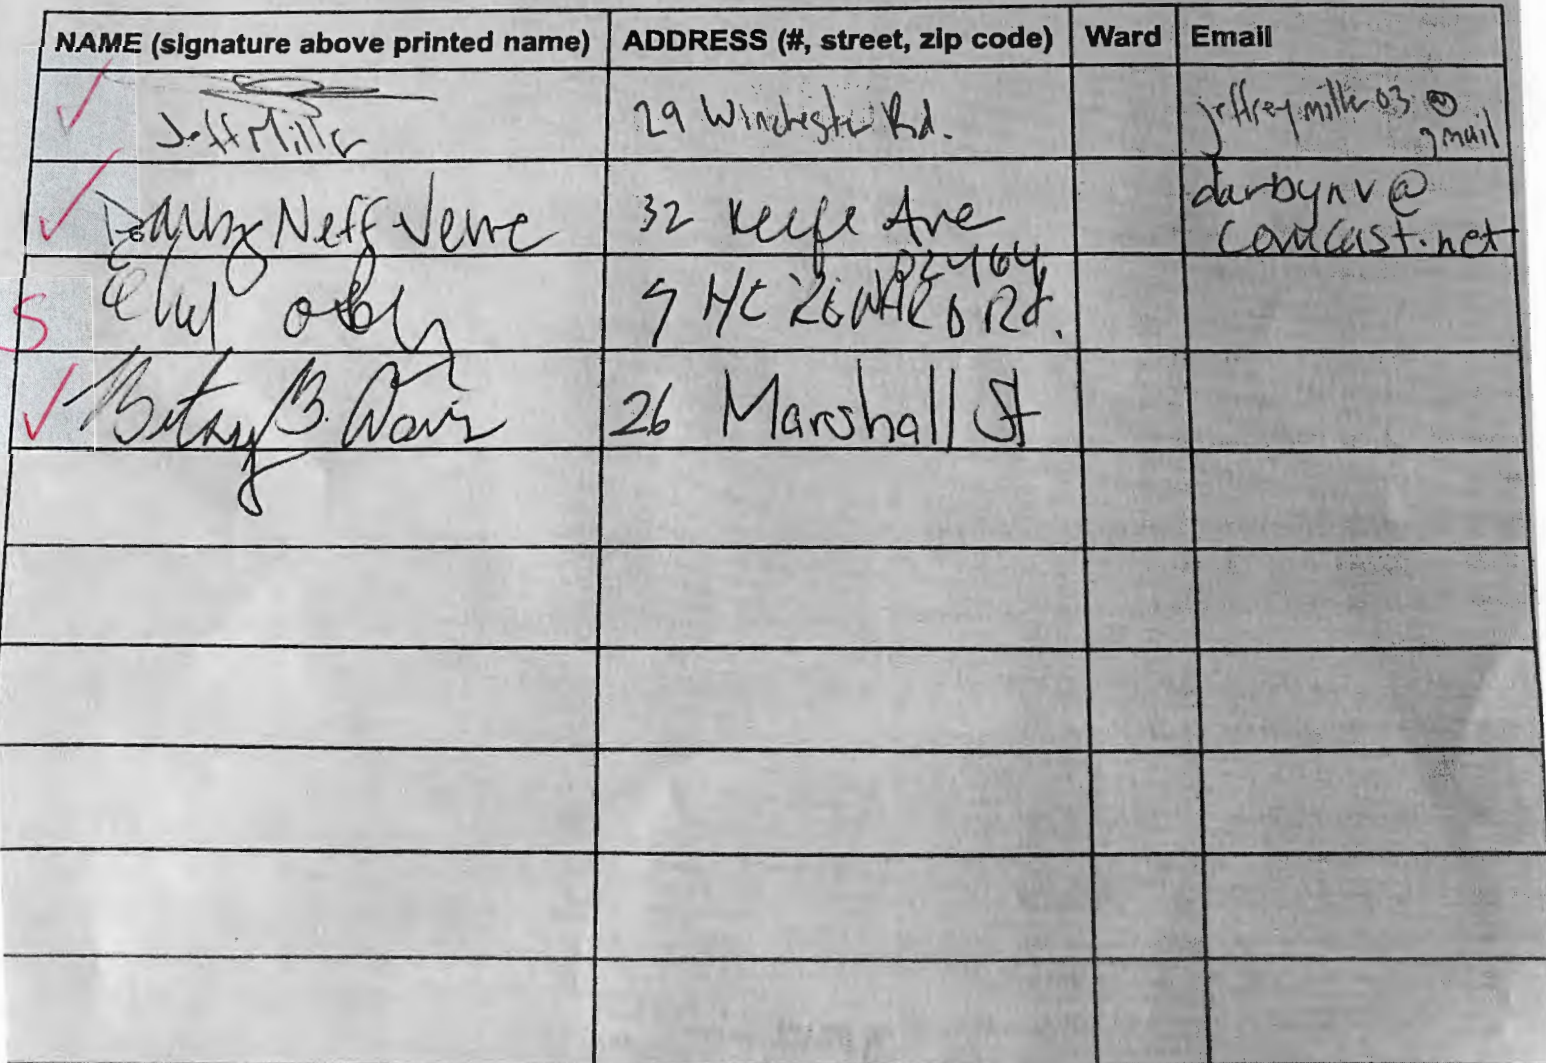 NAME (signature above printed name) ADDRESS (#, street, zip code) Ward Email
Jeff Miller 29 Winchester Rd. jeffreymiller03@
gmail
Darby Neff Verre 32 Keefe Ave darbynv@
comcast.net
02464
S 9 Rd.
Betsy B. Davis 26 Marshall St